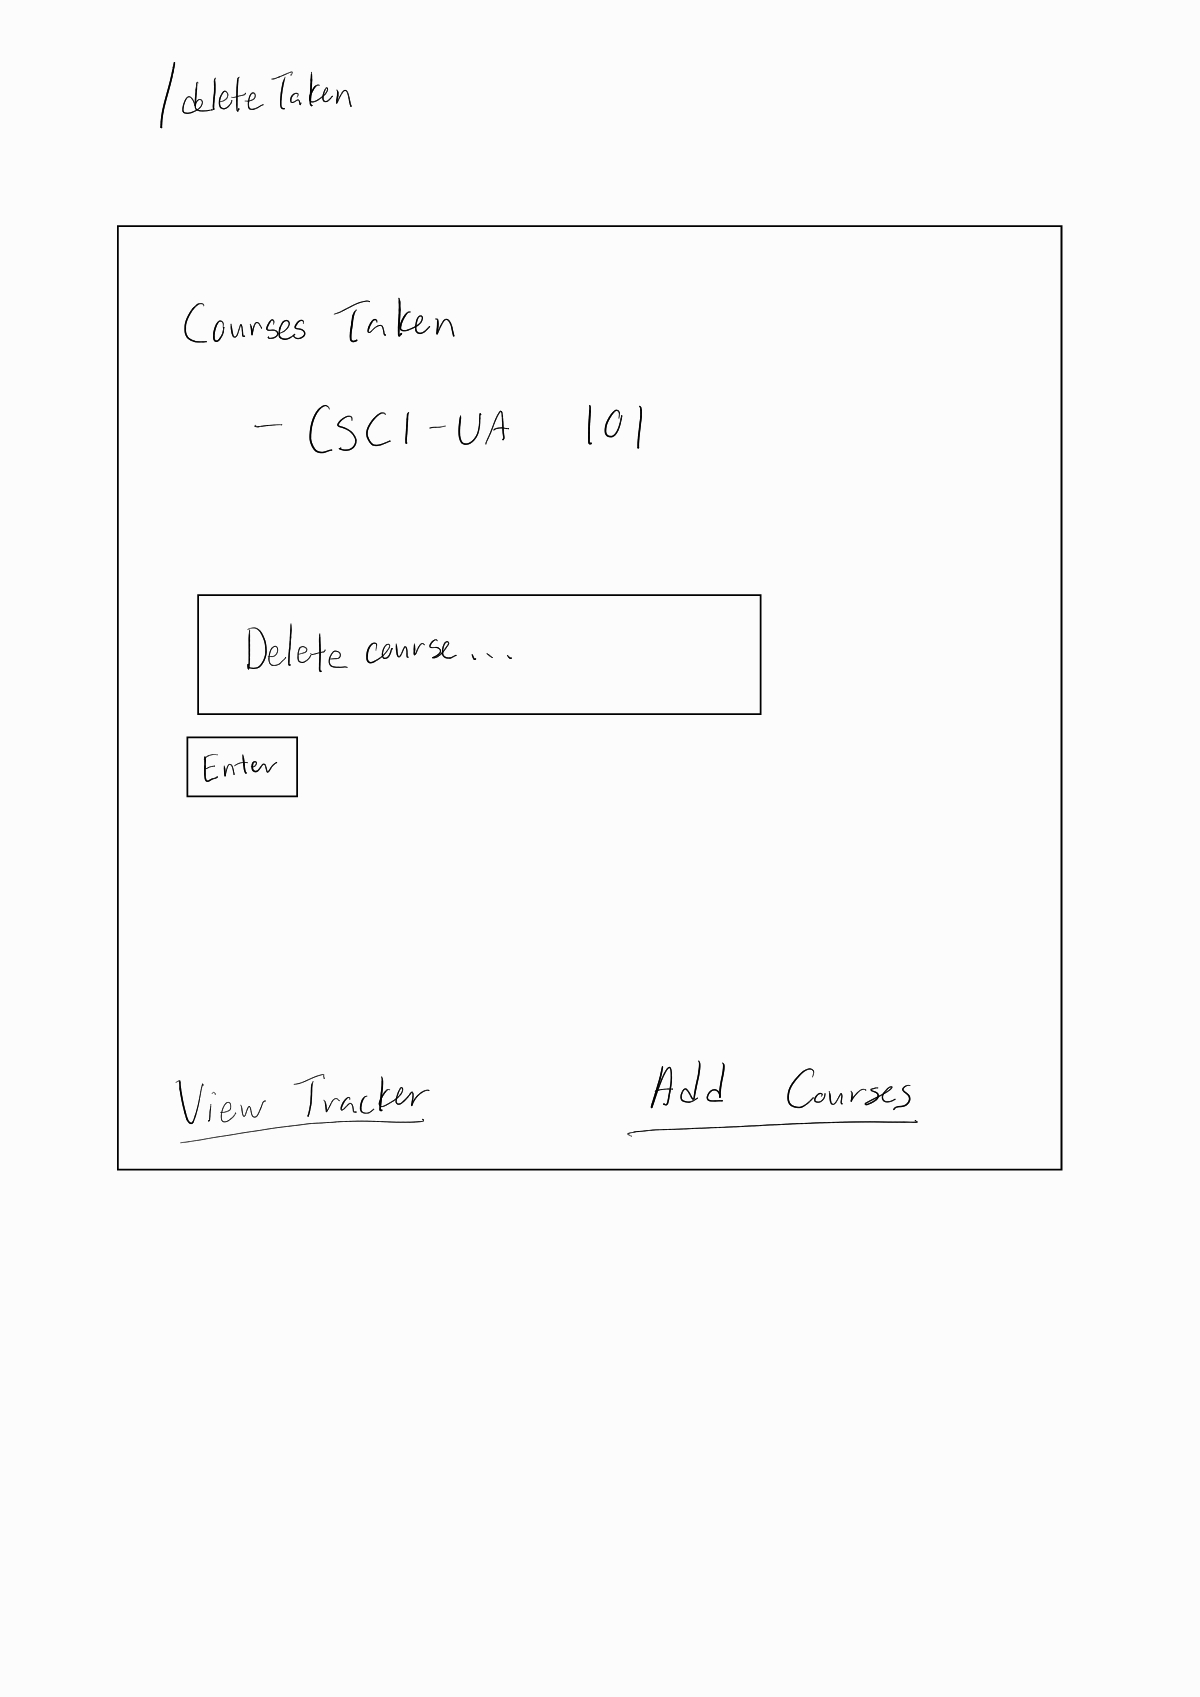 /deleteTaken
Courses Taken
- CSCI-UA 101
Delete course...
Enter
View Tracker
Add Courses